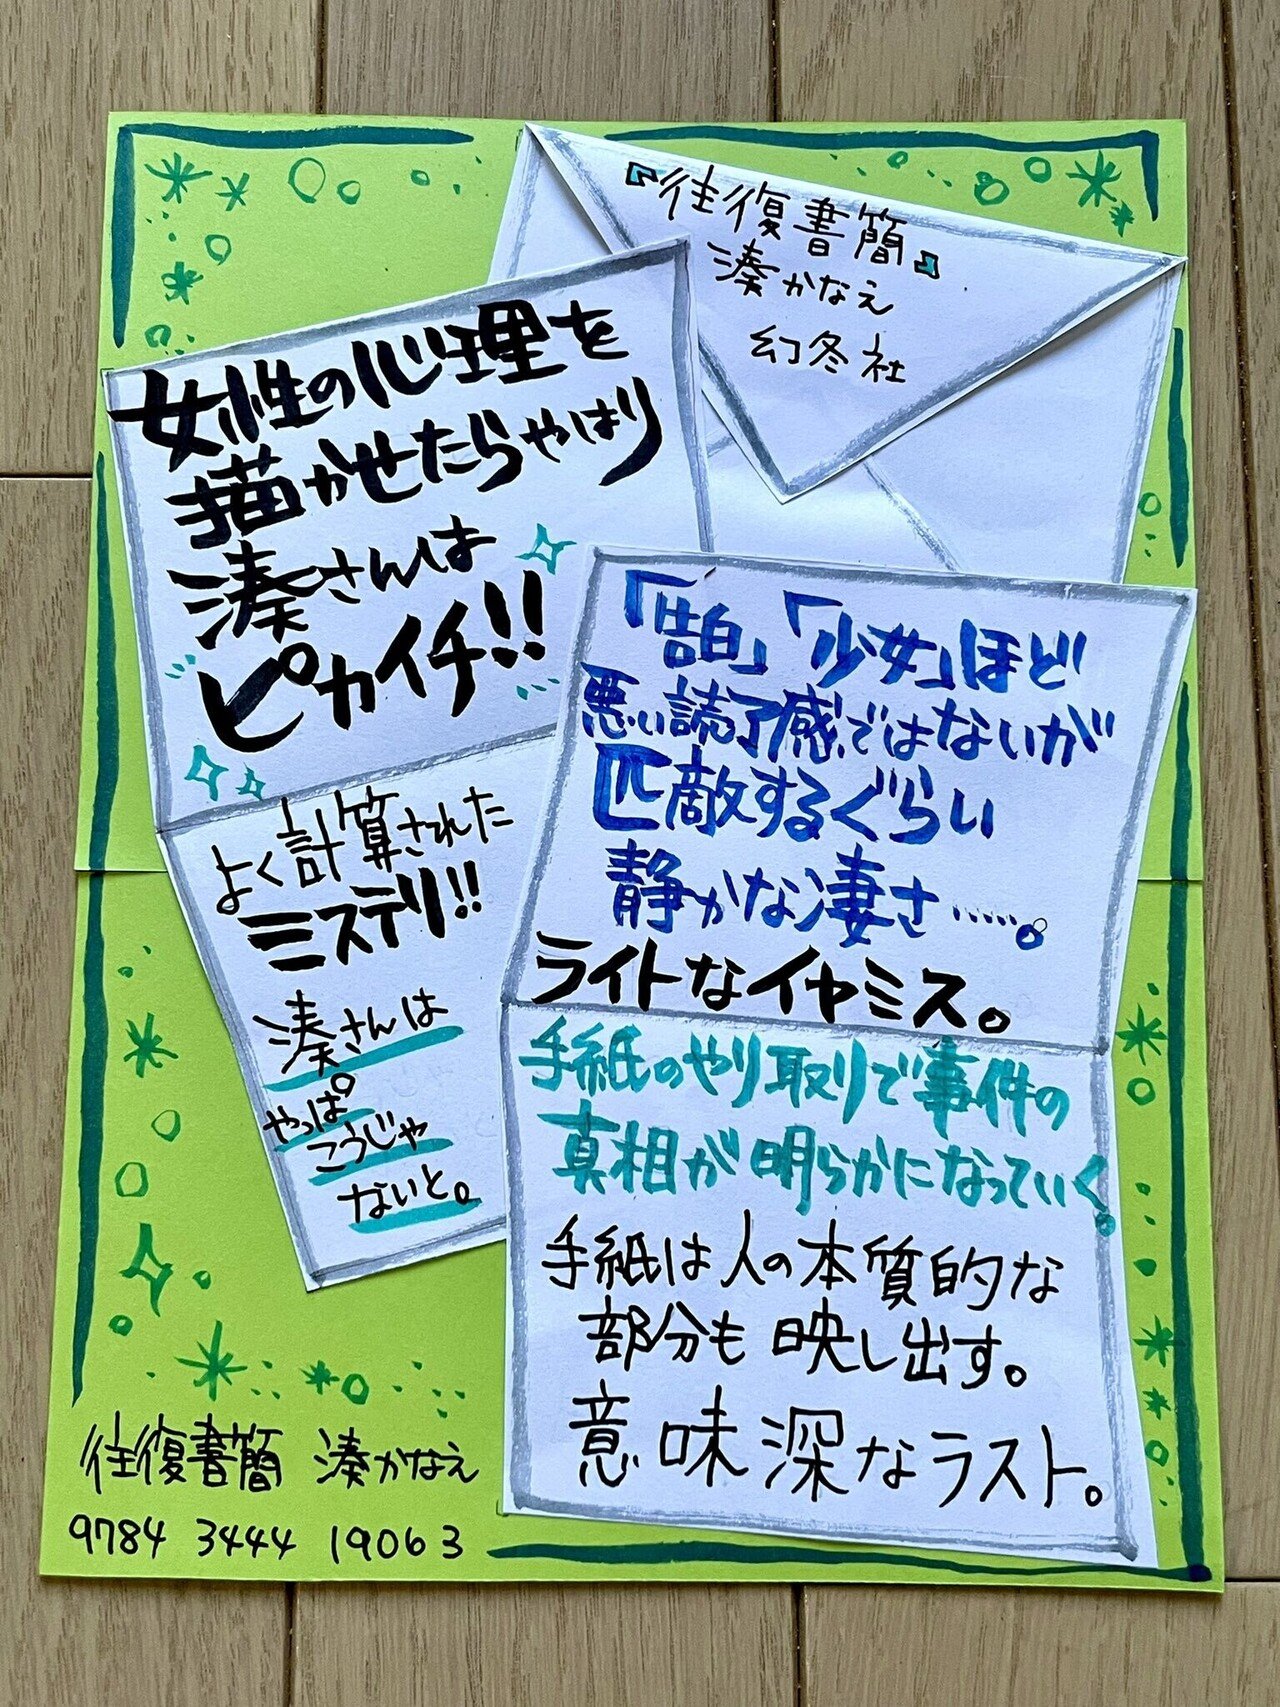 『往復書簡』
湊かなえ
幻冬社
女性の心理を
描かせたらやはり
湊さんは
ピカイチ!!
よく計算された
ミステリ!!
湊さんは
やっぱ
こうじゃ
ないと。
「告白」「少女」ほど
悪い読了感ではないが
匹敵するぐらい
静かな凄さ……。
ライトなイヤミス。
手紙のやり取りで事件の
真相が明らかになっていく。
手紙は人の本質的な
部分も映し出す。
意味深なラスト。
往復書簡 湊かなえ
9784 3444 19063